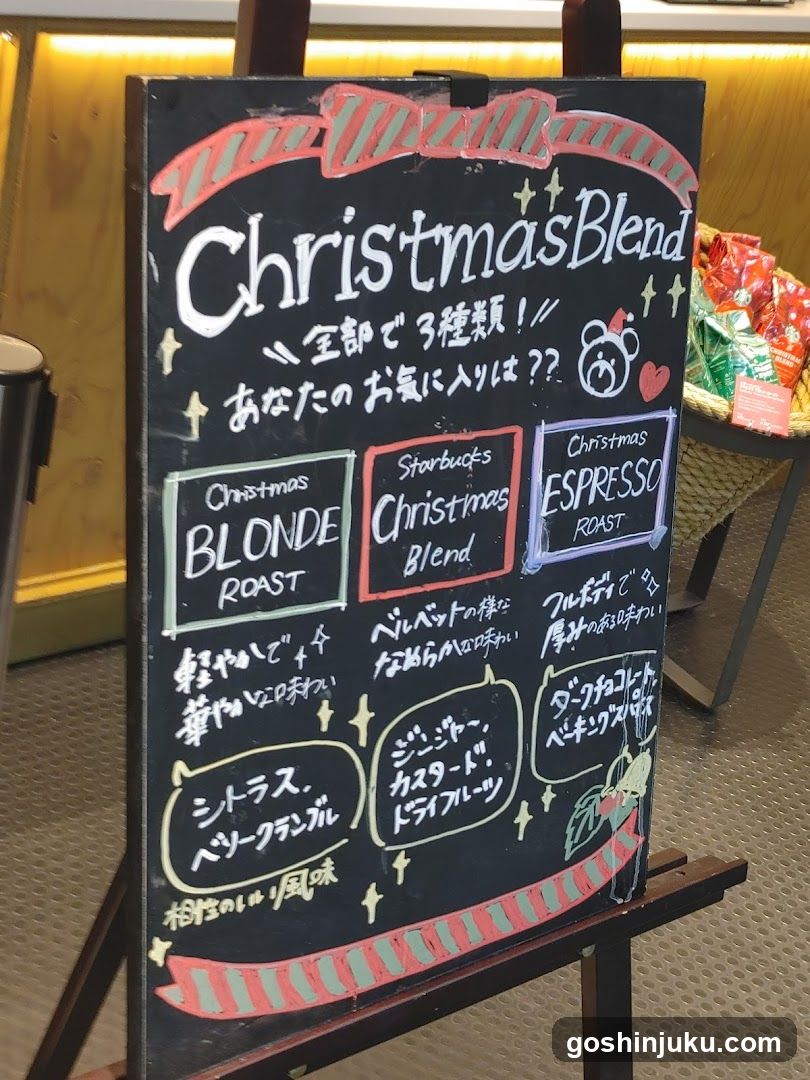 Christmas Blend
全部で3種類！
あなたのお気に入りは??
Christmas
BLONDE
ROAST
軽やかで
華やかな味わい
シトラス、
ベリークランブル
相性のいい風味
Starbucks
Christmas
Blend
ベルベットの様な
なめらかな味わい
ジンジャー、
カスタード、
ドライフルーツ
Christmas
ESPRESSO
ROAST
フルボディで
厚みのある味わい
ダークチョコレート、
ベーキングスパイス
CHRISTMAS
BLEND
goshinjuku.com